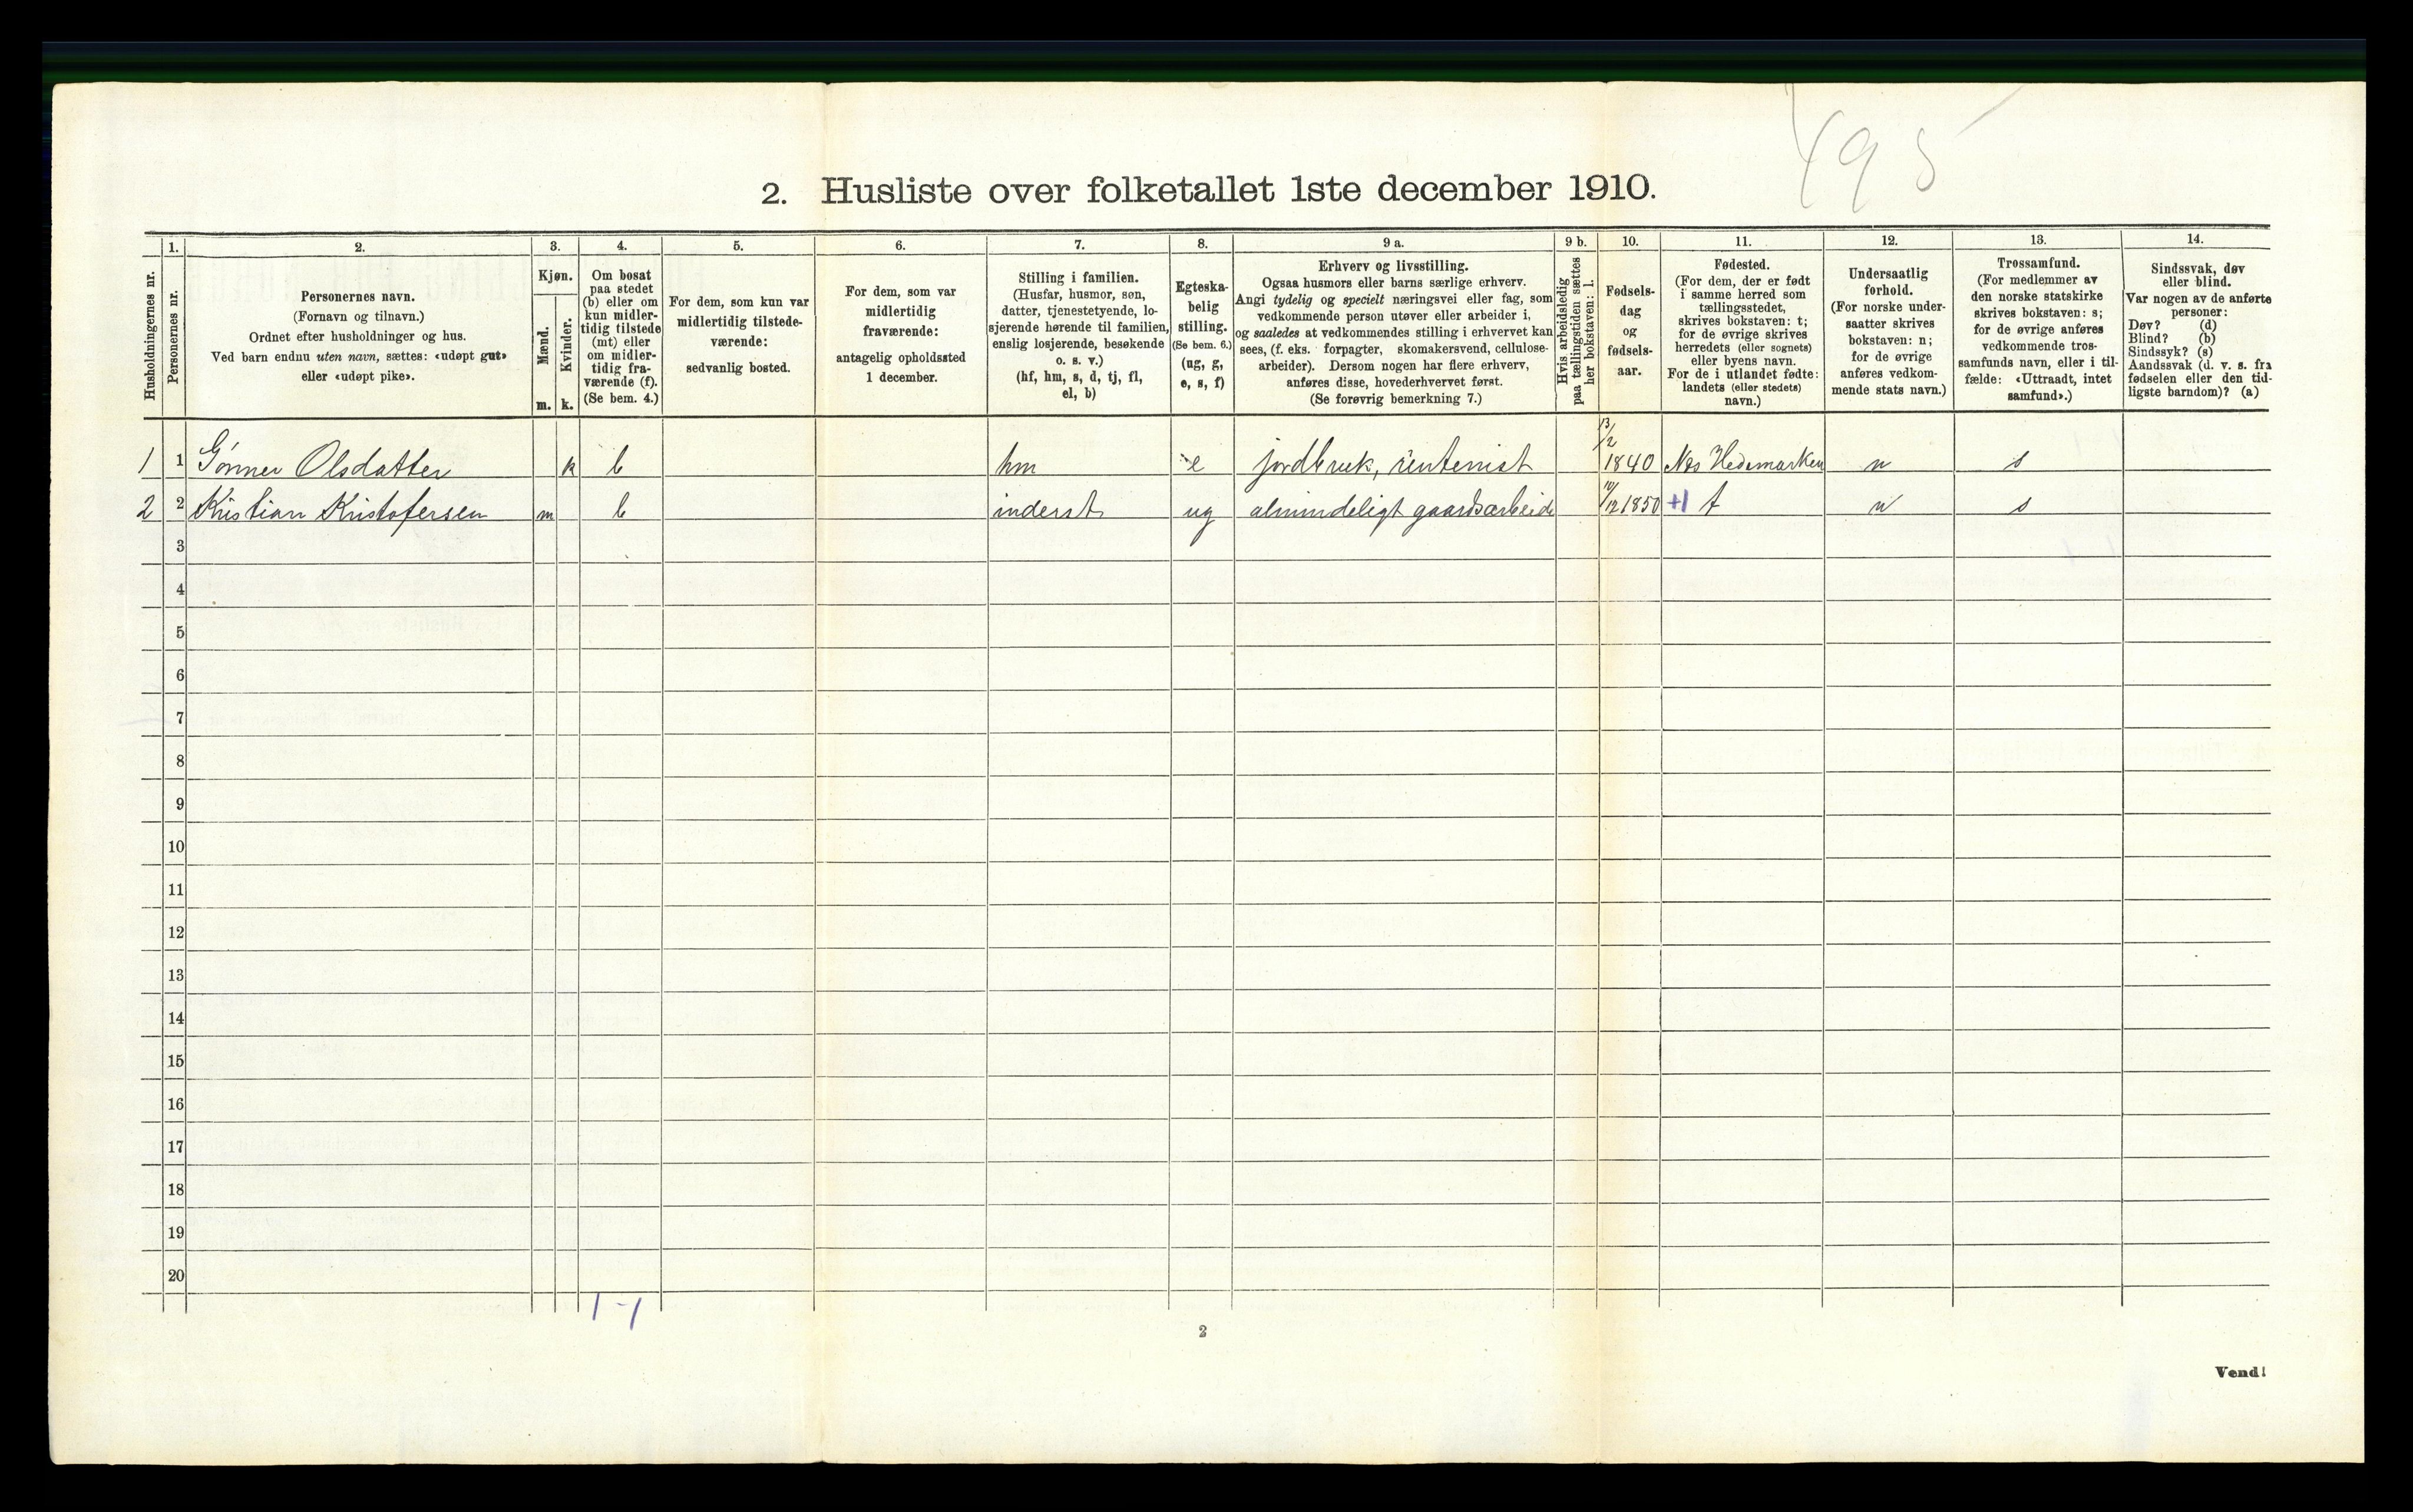 495
2. Husliste over folketallet 1ste december 1910.
Husholdningernes nr.
1.
Personernes nr.
2.
Personernes navn.
(Fornavn og tilnavn.)
Ordnet efter husholdninger og hus.
Ved barn endnu uten navn, sættes: «udøpt gut»
eller «udøpt pike».
3.
Kjøn.
Mænd.
m.
Kvinder.
k.
4.
Om bosat
paa stedet
(b) eller om
kun midler-
tidig tilstede
(mt) eller
om midler-
tidig fra-
værende (f).
(Se bem. 4.)
5.
For dem, som kun var
midlertidig tilstede-
værende:
sedvanlig bosted.
6.
For dem, som var
midlertidig
fraværende:
antagelig opholdssted
1 december.
7.
Stilling i familien.
(Husfar, husmor, søn,
datter, tjenestetyende, lo-
sjerende hørende til familien,
enslig losjerende, besøkende
o. s. v.)
(hf, hm, s, d, tj, fl,
el, b)
8.
Egteska-
belig
stilling.
(Se bem. 6.)
(ug, g,
e, s, f)
9 a.
Erhverv og livsstilling.
Ogsaa husmors eller barns særlige erhverv.
Angi tydelig og specielt næringsvei eller fag, som
vedkommende person utøver eller arbeider i,
og saaledes at vedkommendes stilling i erhvervet kan
sees, (f. eks. forpagter, skomakersvend, cellulose-
arbeider). Dersom nogen har flere erhverv,
anføres disse, hovederhvervet først.
(Se forøvrig bemerkning 7.)
9 b.
Hvis arbeidsledig
paa tællingstiden sættes
her bokstaven: l.
10.
Fødsels-
dag
og
fødsels-
aar.
11.
Fødested.
(For dem, der er født
i samme herred som
tællingsstedet,
skrives bokstaven: t;
for de øvrige skrives
herredets (eller sognets)
eller byens navn.
For de i utlandet fødte:
landets (eller stedets)
navn.)
12.
Undersaatlig
forhold.
(For norske under-
saatter skrives
bokstaven: n;
for de øvrige
anføres vedkom-
mende stats navn.)
13.
Trossamfund.
(For medlemmer av
den norske statskirke
skrives bokstaven: s;
for de øvrige anføres
vedkommende tros-
samfunds navn, eller i til-
fælde: «Uttraadt, intet
samfund».)
14.
Sindssvak, døv
eller blind.
Var nogen av de anførte
personer:
Døv? (d)
Blind? (b)
Sindssyk? (s)
Aandssvak (d. v. s. fra
fødselen eller den tid-
ligste barndom)? (a)
1 1 Gønner Olsdatter k b hm e jordbruk, rentenist 13/2 1840 Nes Hedemarken n s
2 2 Kristian Kristofersen m b inderst ug almindeligt gaardsarbeide 10/12 1850 +1 t n s
3
4
5
6
7
8
9
10
11
12
13
14
15
16
17
18
19
20
1 - 1
2
Vend!